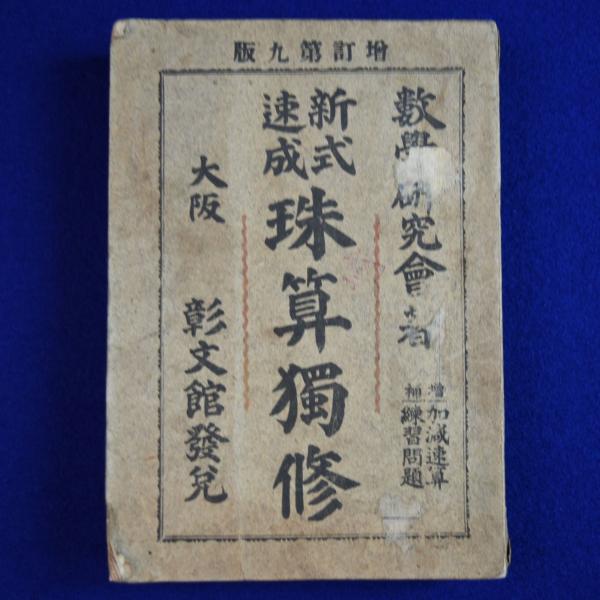 版九第訂增
數學研究會著
增補
加減速算
練習問題
新式
速成
珠算獨修
大阪
彰文館發兌